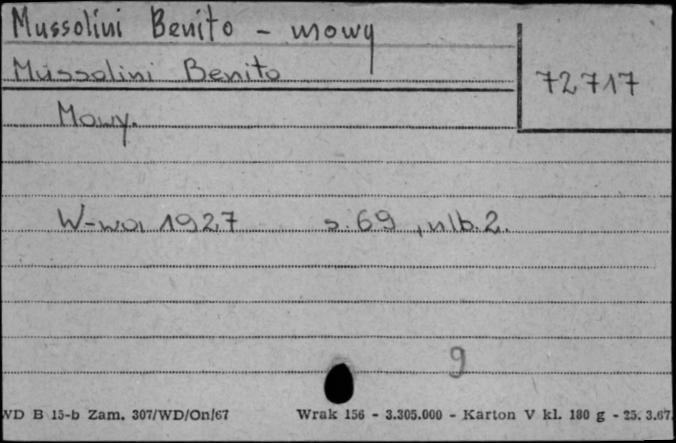 Mussolini Benito - mowy
Mussolini Benito
72717
Mowy.
W-wa 1927 s. 69, nlb. 2.
9
WD B 15-b Zam. 307/WD/On/67 Wrak 156 - 3.305.000 - Karton V kl. 180 g - 25. 3.67